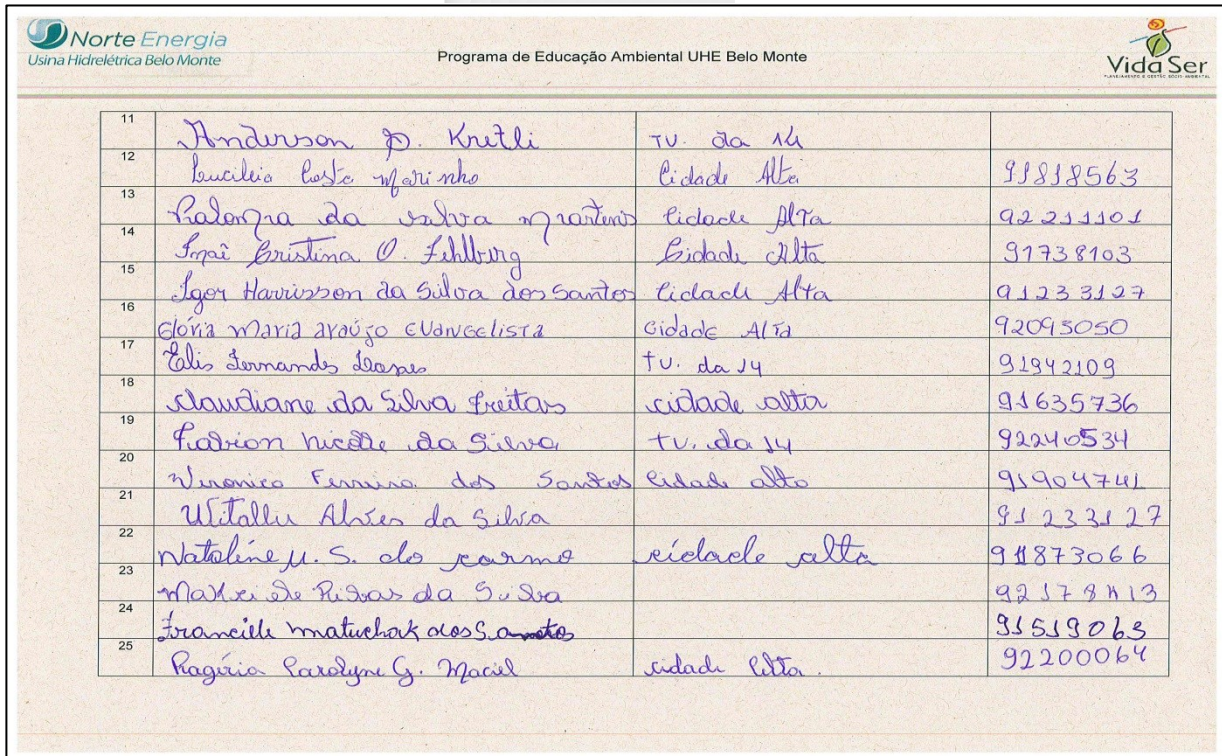 Norte Energia
Usina Hidrelétrica Belo Monte
Programa de Educação Ambiental UHE Belo Monte
Vida Ser
11 Anderson D. Kretli TV. da 14
12 Lucileia Costa Marinho Cidade Alta 91818563
13 da Cidade Alta 92211101
14 Cristina O. Fehlberg Cidade Alta 91738103
15 Igor Harrisson da Silva dos Santos Cidade Alta 91233127
16 Glória Maria Araújo Evangelista cidade Alta 92093050
17 Elis Fernandes TV. da 14 91942109
18 Claudiane da Silva Freitas cidade alta 91635736
19 da Silva TV. da 14 92240534
20 Veronica Ferreira dos Santos Cidade alta 91904741
21 Alves da Silva 91233127
22 Nataline M. S. do carmo cidade alta 91873066
23 da Silva
24 Francielle matuchak dos Santos 91519063
25 Carolyne G. Maciel cidade 92200064